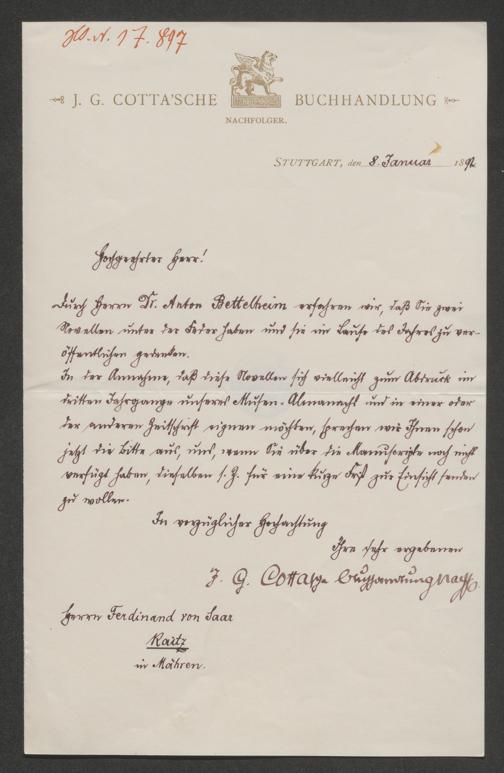 J. G. COTTA'SCHE BUCHHANDLUNG
NACHFOLGER.
STUTTGART, den 8. Januar 1892
Hochgeehrter Herr!
Durch Herrn Dr. Anton Bettelheim erfahren wir, daß Sie zwei
Novellen unter der Feder haben und sie im Laufe des Jahres zu ver-
öffentlichen gedenken.
In der Annahme, daß diese Novellen sich vielleicht zum Abdruck im
dritten Jahrgange unseres Musen-Almanachs und in einer oder
der anderen Zeitschrift eignen möchten, sprechen wir Ihnen schon
jetzt die Bitte aus, uns, wenn Sie über die Manuscripte noch nicht
verfügt haben, dieselben s. Z. für eine kurze Frist zur Einsicht senden
zu wollen.
In vorzüglicher Hochachtung
Ihre sehr ergebenen
J. G. Cotta'sche Buchhandlung Nachf.
Herrn Ferdinand von Saar
Raitz
in Mähren.